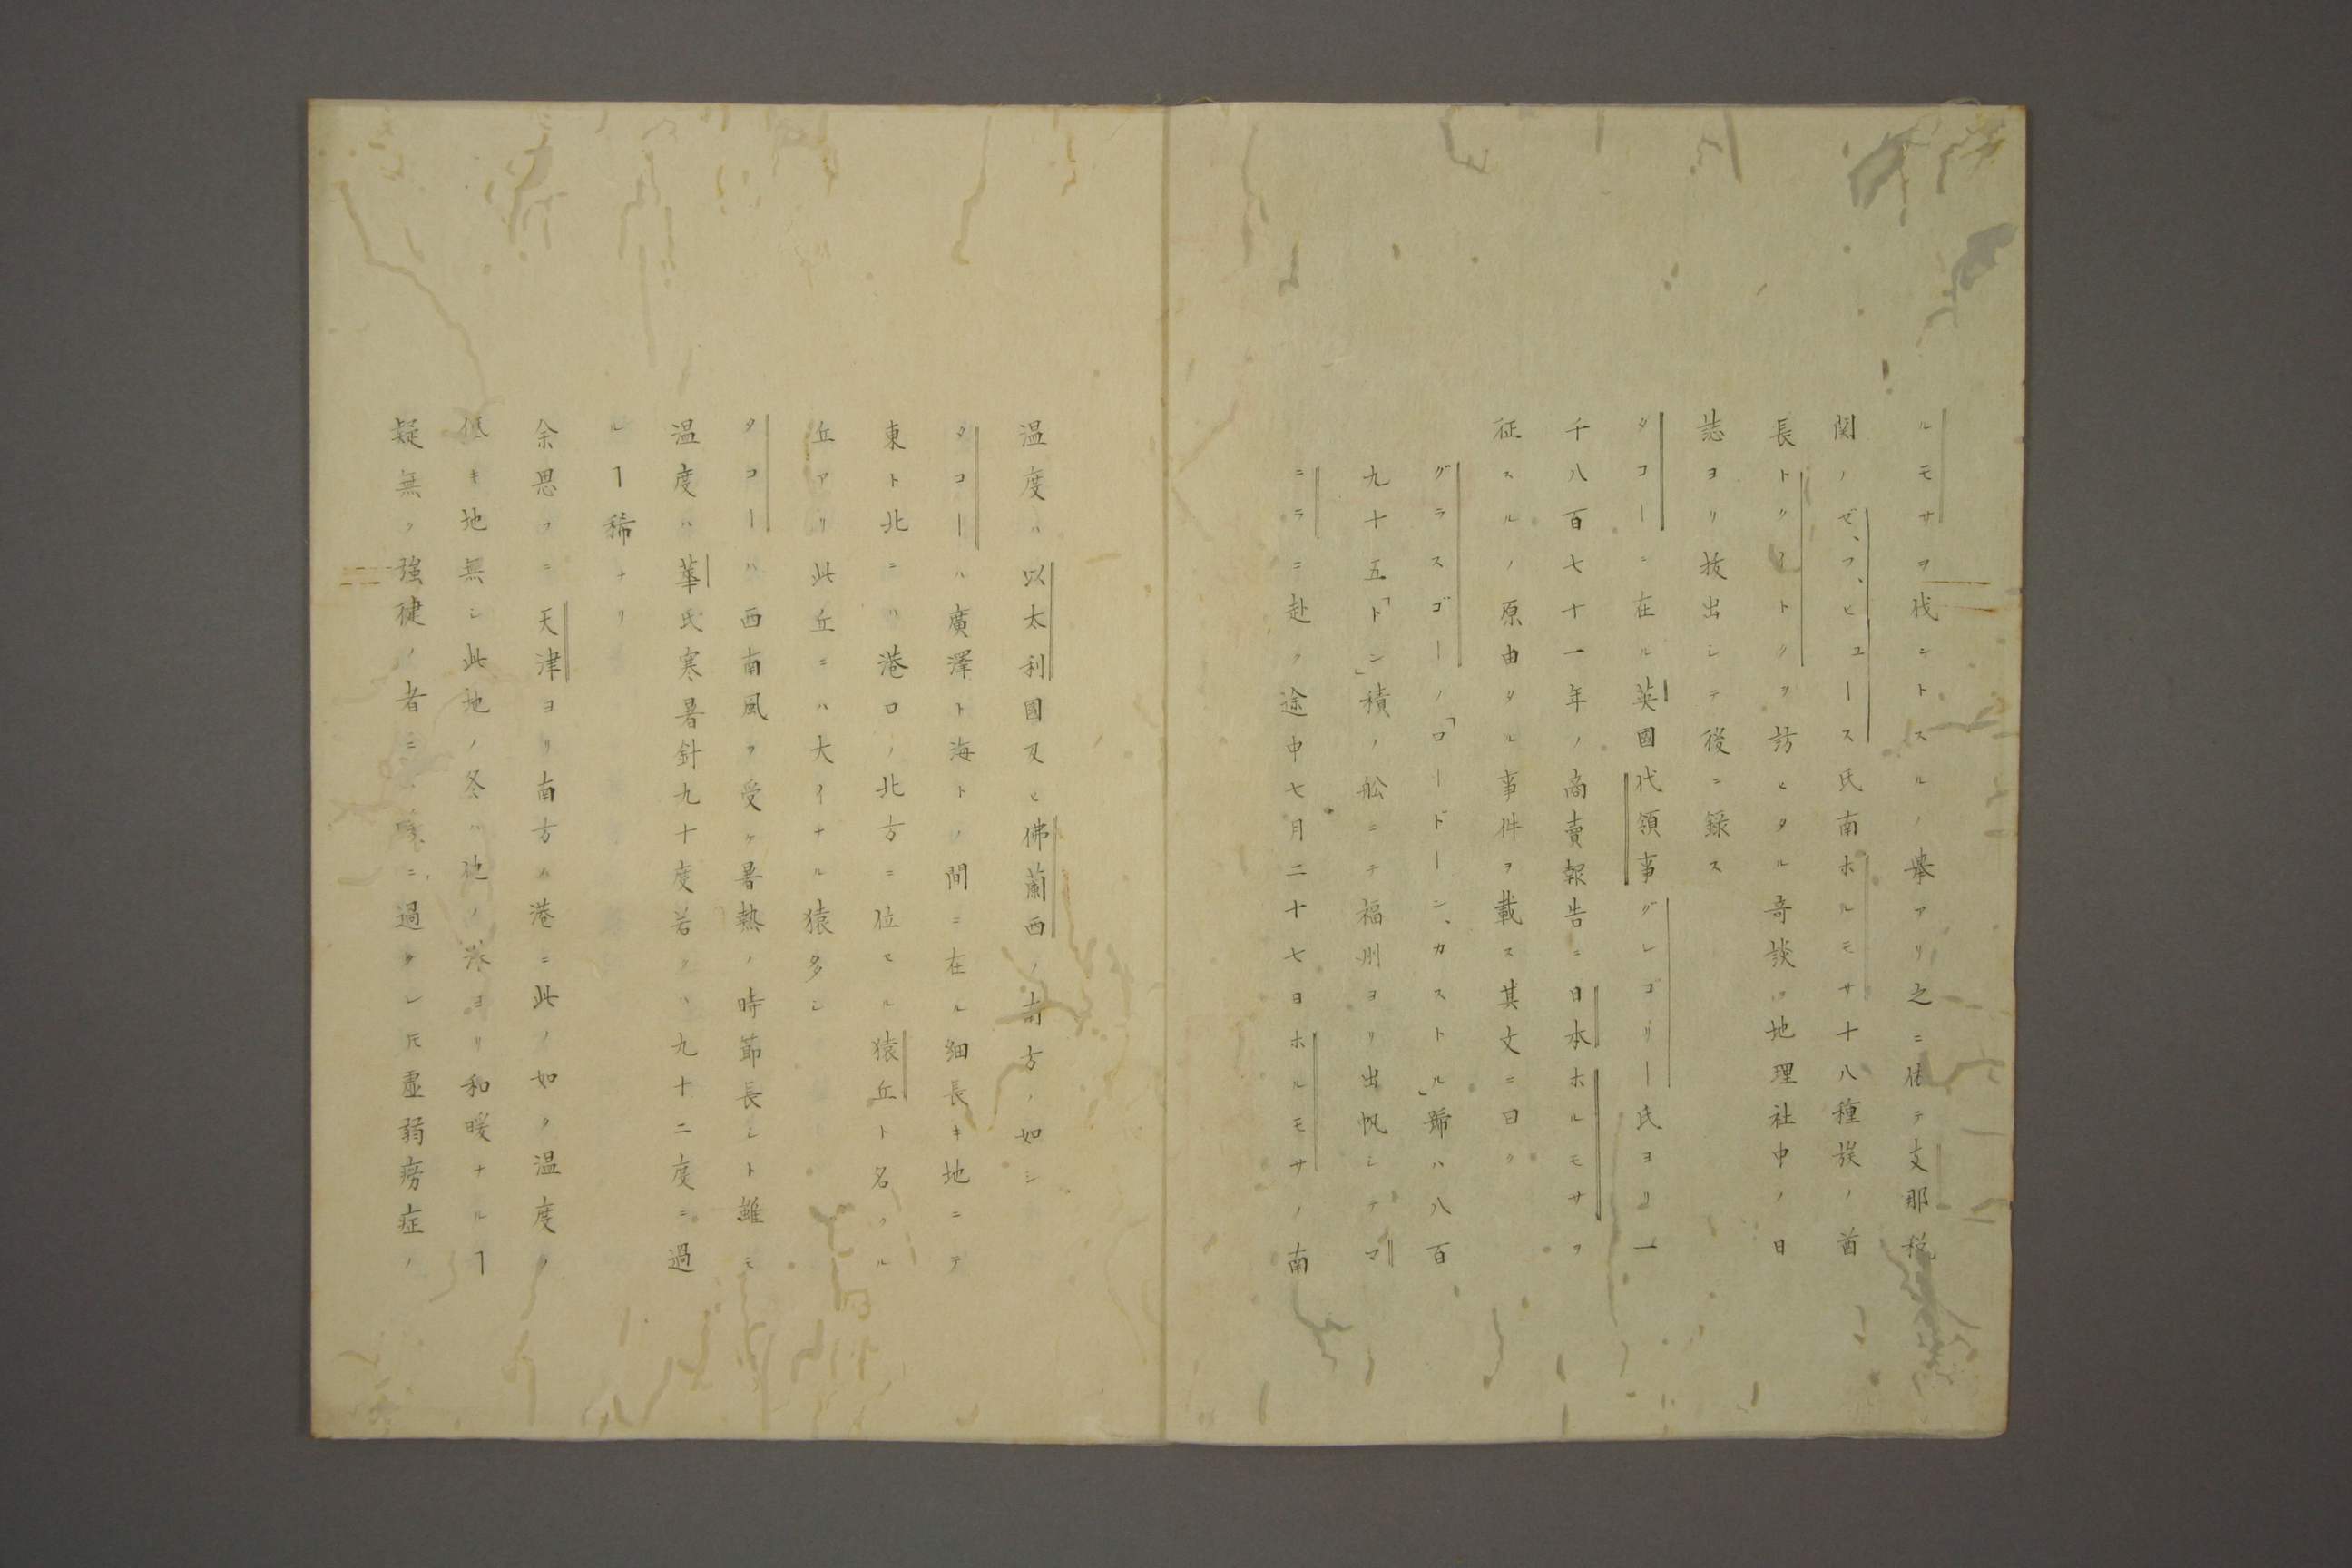 ルモサヲ伐ントスルノ擧アリ之ニ依テ支那税
関ノぜ、フ、ヒュースス氏南ホルモサ十八種族ノ酋
長トクイトクヲ訪ヒタル奇談ヲ地理社中ノ日
誌ヨリ抜出シテ後ニ録ス
タコーニ在ル英國代領事グレゴリー氏ヨリ一
千八百七十一年ノ商賣報告ニ日本ホルモサヲ
征スルノ原由タル事件ヲ載ス其文ニ曰ク
グラスゴーノ「ロードーン、カストル」號ハ八百
九十五「トン」積ノ舩ニテ福州ヨリ出帆シテマ
ニラニ赴ク途中七月二十七日ホルモサノ南
温度ハ以太利國及ヒ佛蘭西ノ南方ノ如シ
タコーハ廣澤ト海トノ間ニ在ル細長キ地ニテ
東ト北ニハ港口ノ北方ニ位セル猿丘ト名クル
丘アリ此丘ニハ大イナル猿多シ
タコーハ西南風ヲ受ケ暑熱ノ時節長シト雖モ
温度ハ華氏寒暑針九十度若クハ九十二度ニ過
ルヿ稀ナリ
余思フニ天津ヨリ南方ノ港ニ此ノ如ク温度ノ
低キ地無シ此地ノ冬ハ他ノ港ヨリ和暖ナルヿ
疑無ク強健ノ者ニハ ニ過クレ𪜈虚弱癆症ノ